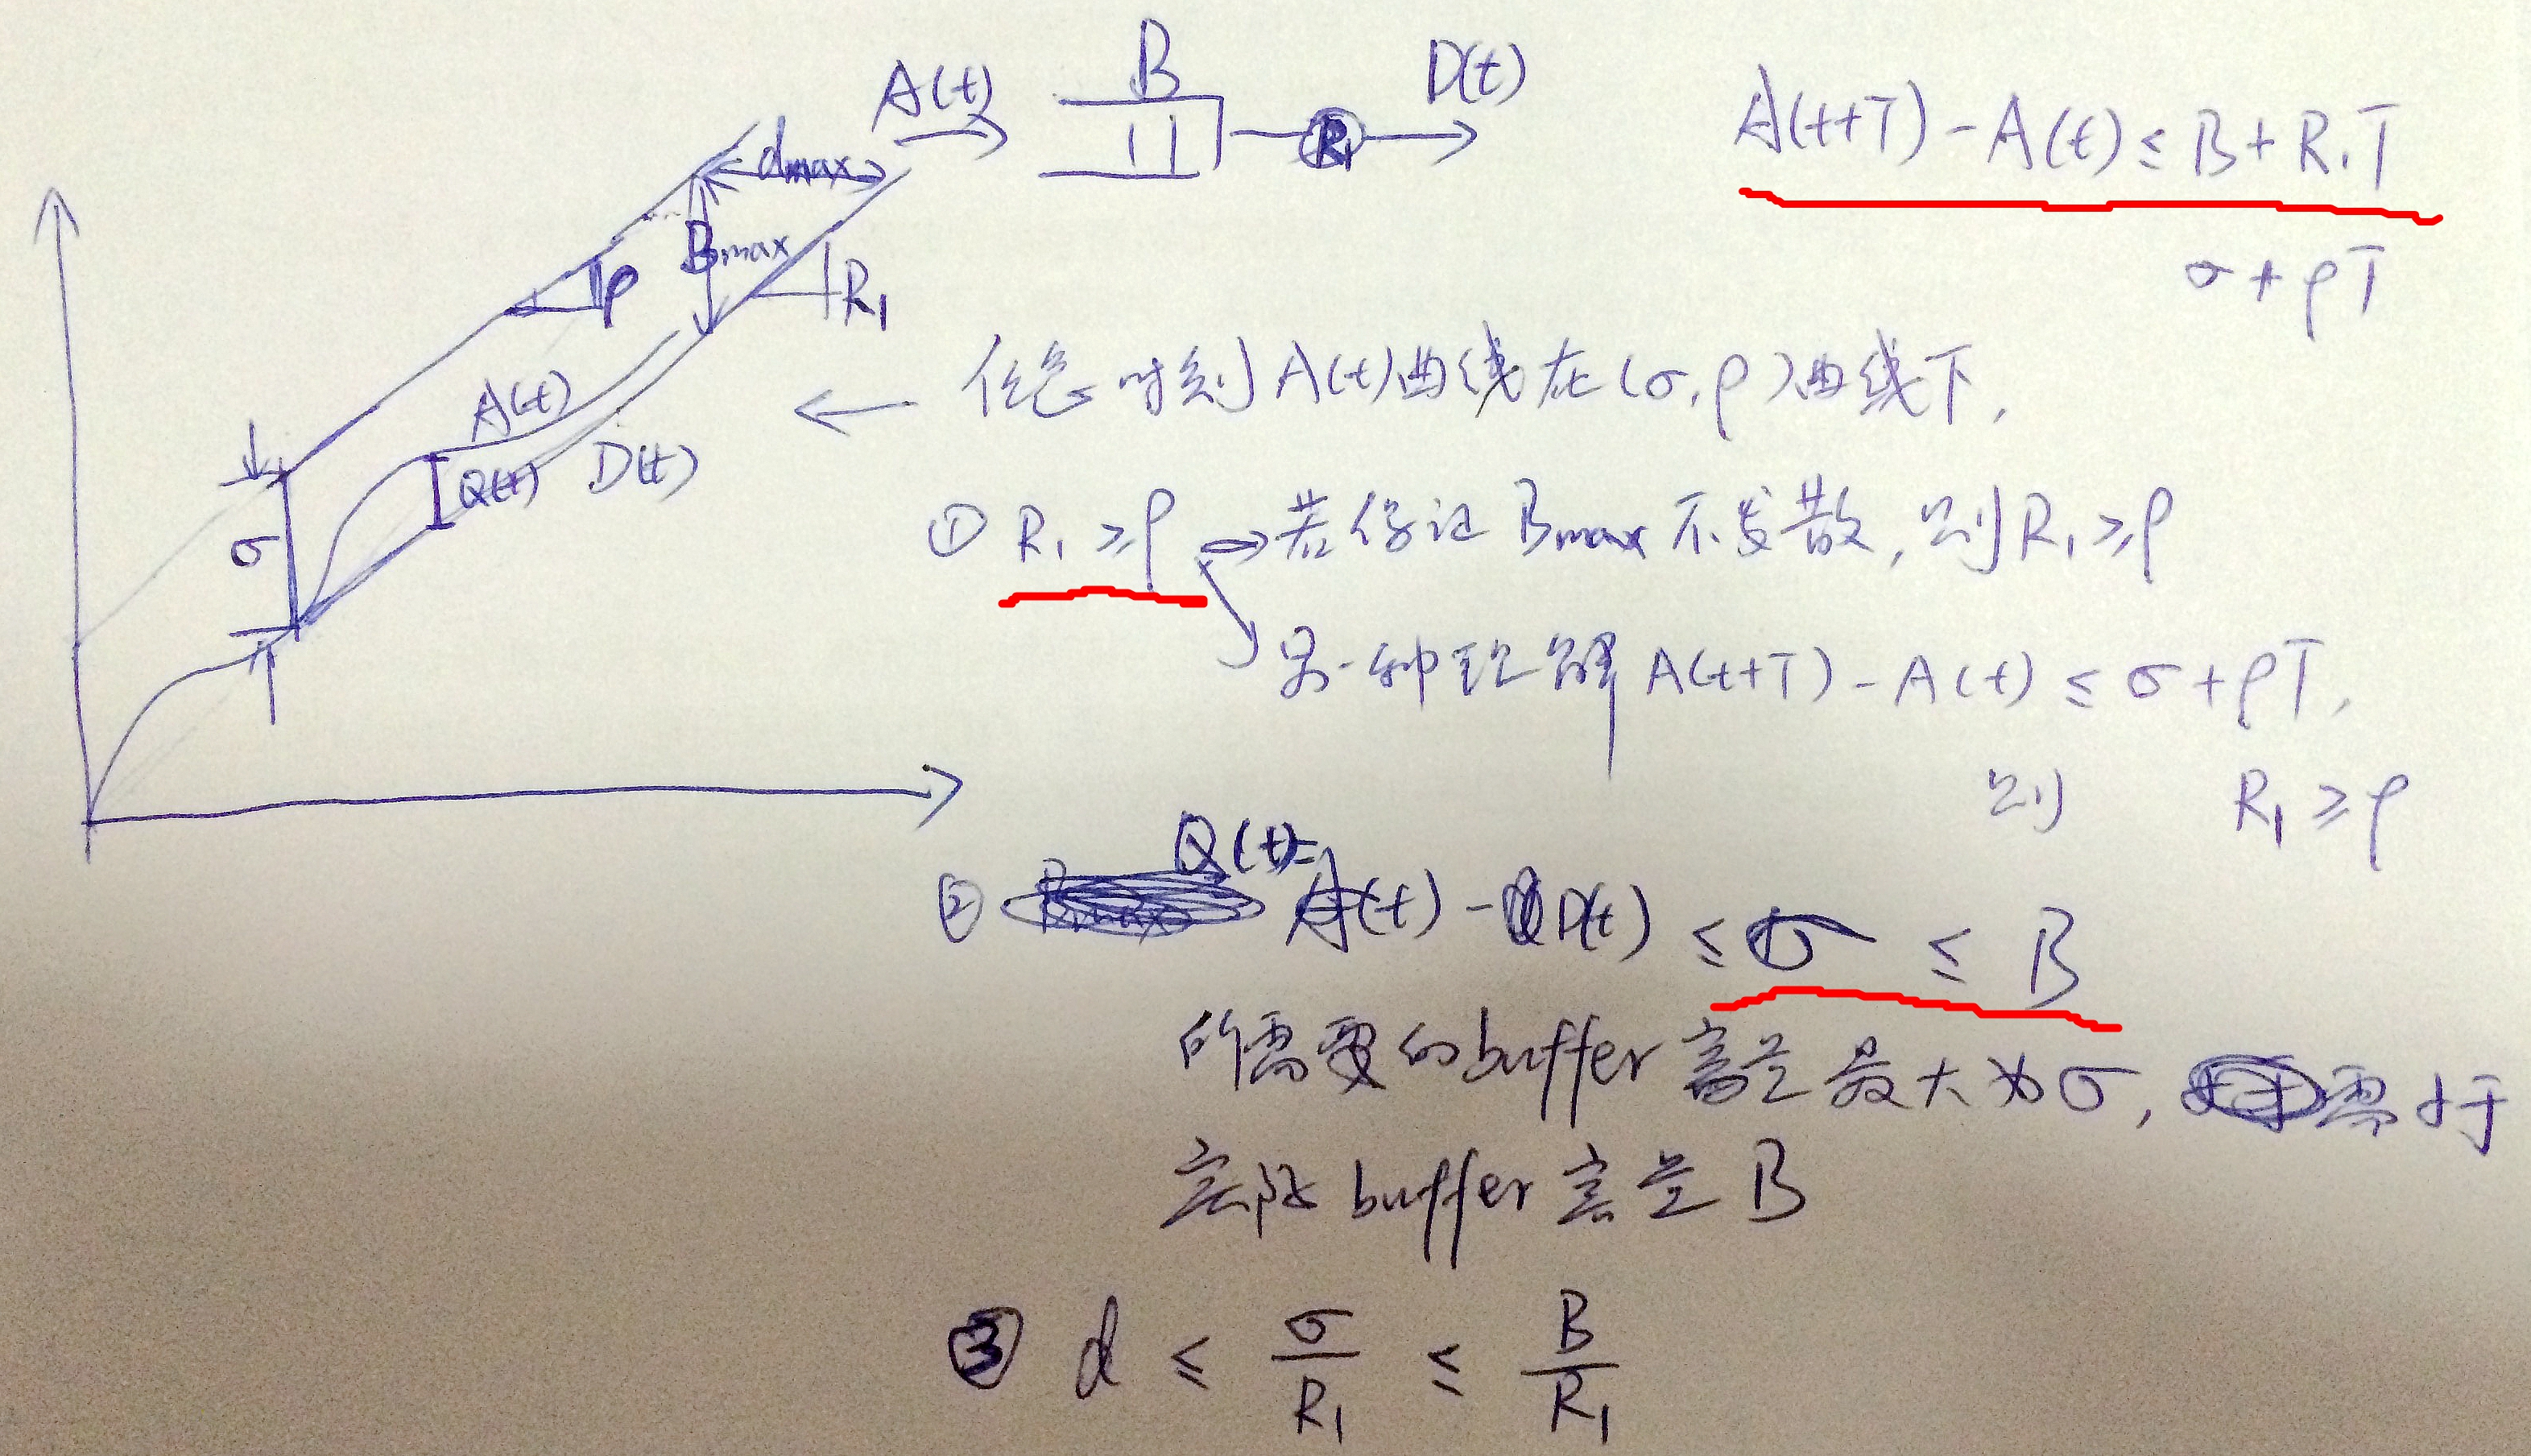 A(t) B R₁ D(t)
A(t+T) - A(t) ≤ B + R₁T
σ + ρT
dmax
Bmax
ρ
R₁
A(t)
Q(t) D(t)
σ
← 任意时刻 A(t) 曲线在 (σ, ρ) 曲线下,
① R₁ ≥ ρ ⇒ 若保证 Bmax 不发散, 则 R₁ ≥ ρ
另一种理解 A(t+T) - A(t) ≤ σ + ρT,
则 R₁ ≥ ρ
Q(t)=
② A(t) - D(t) ≤ σ ≤ B
所需要的buffer容量最大为σ, 需小于
实际buffer容量B
③ d ≤ σ/R₁ ≤ B/R₁